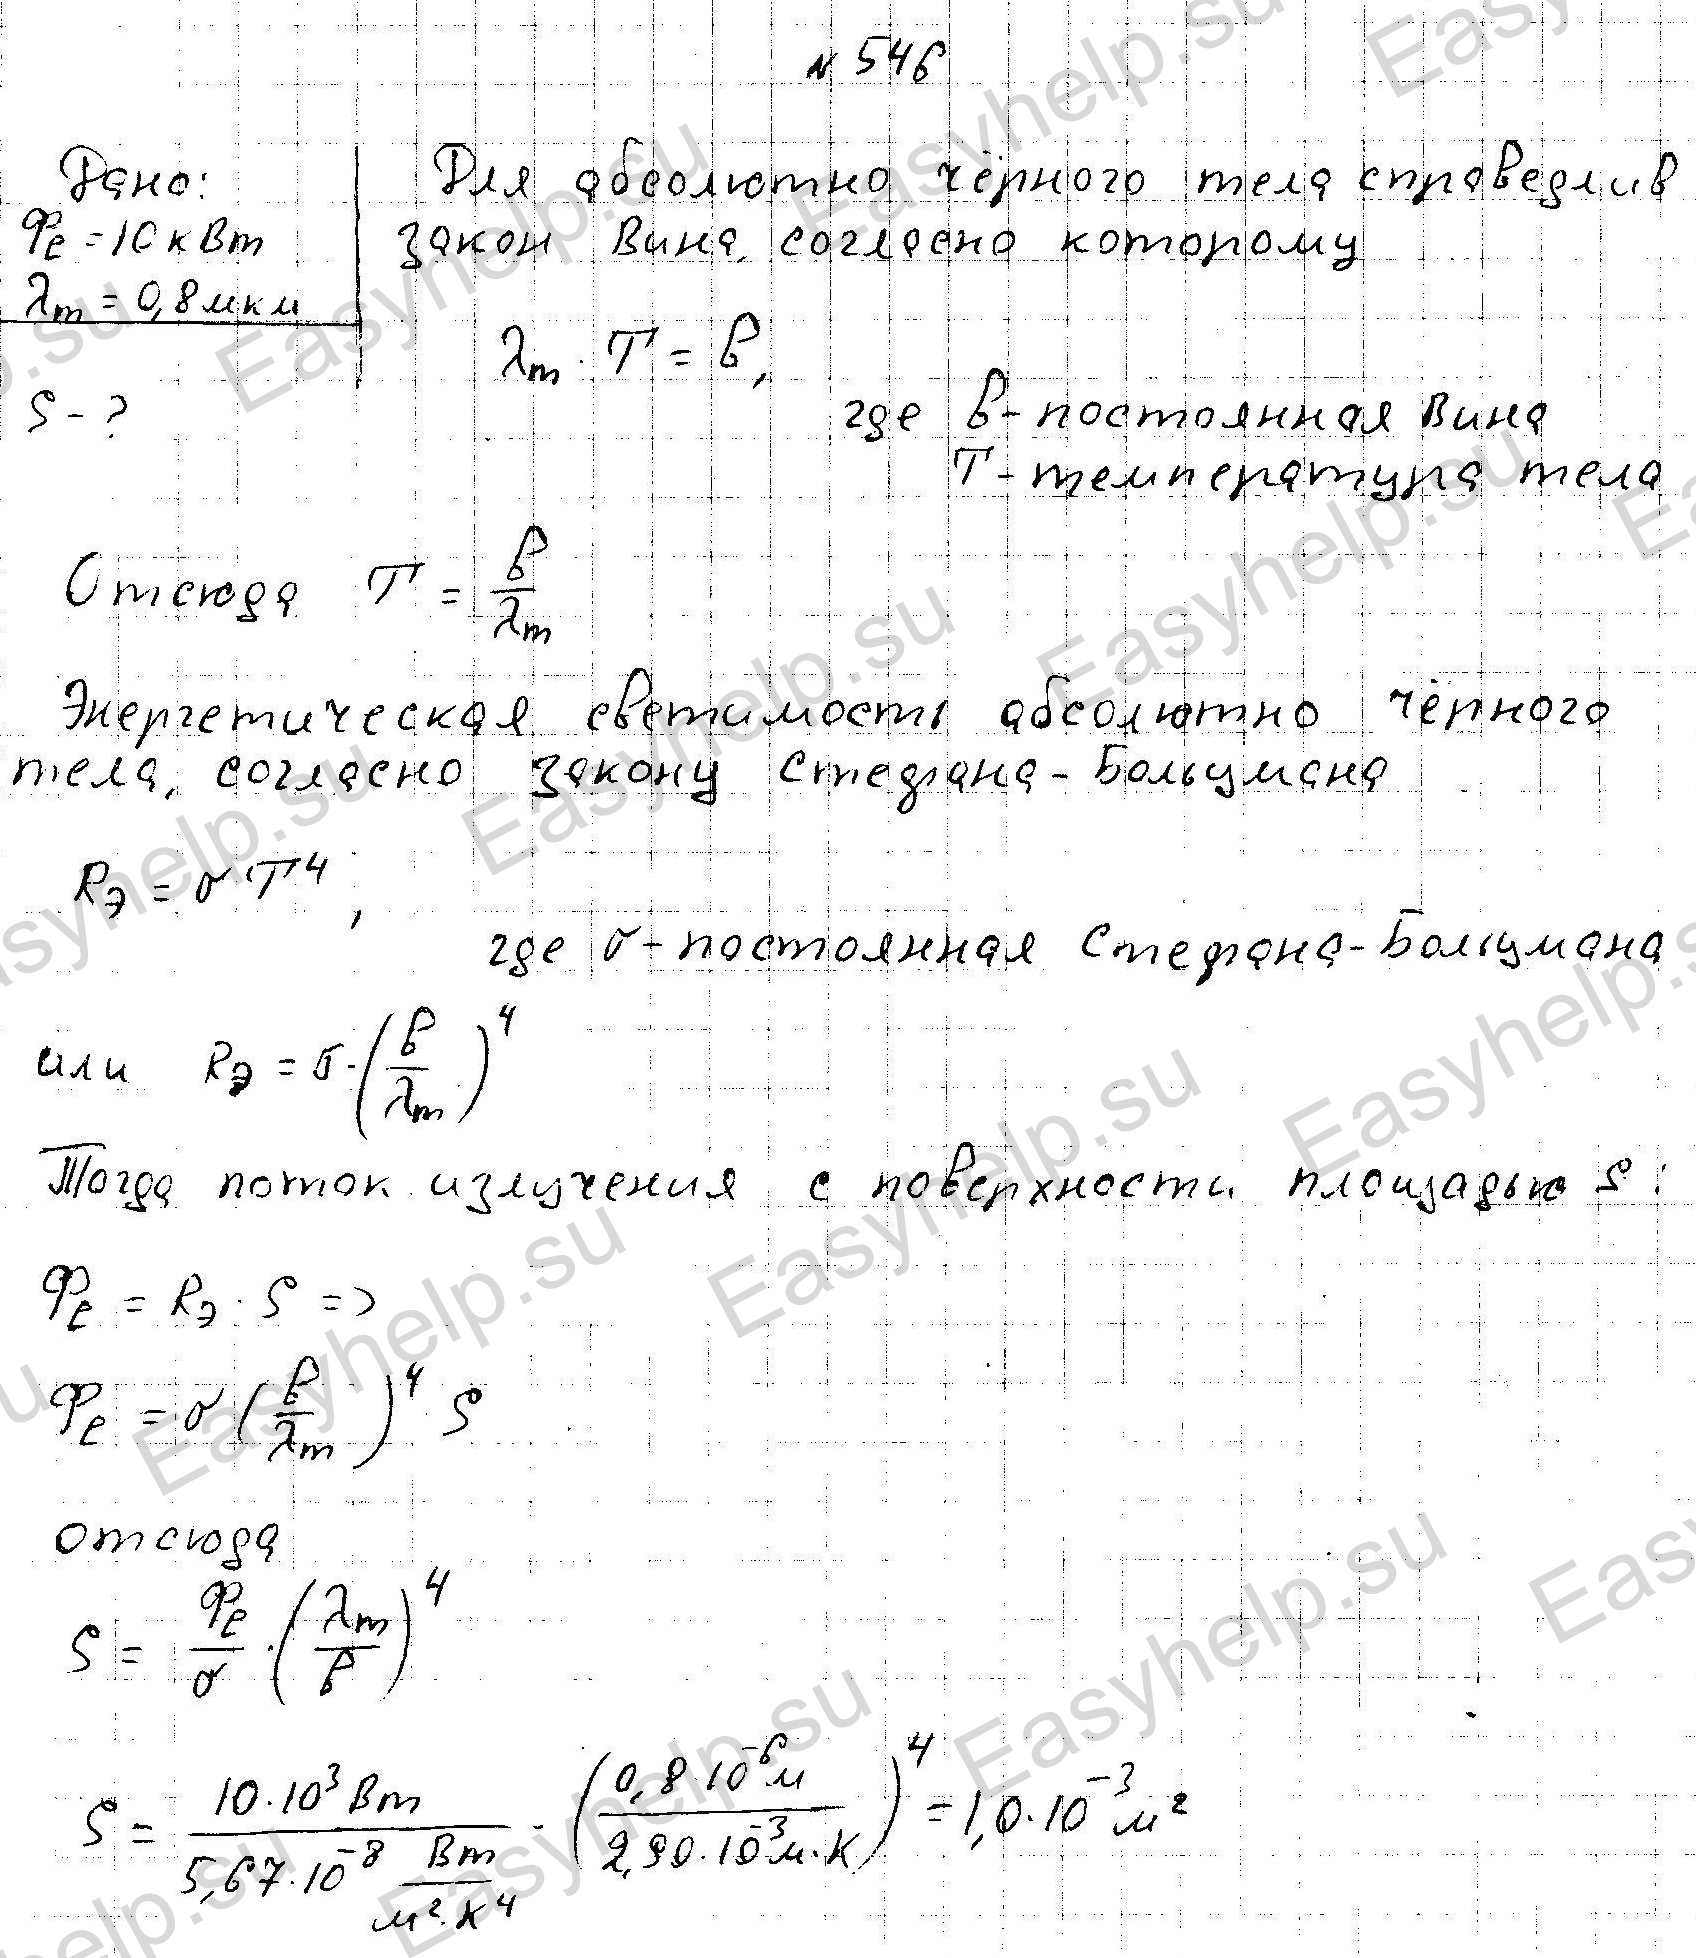 № 546
Дано:
Фe = 10 кВт
λm = 0,8 мкм
S - ?
Для абсолютно чёрного тела справедлив
закон Вина, согласно которому
λm · T = b,
где b - постоянная Вина
T - температура тела
Отсюда T = b/λm
Энергетическая светимость абсолютно чёрного
тела, согласно закону Стефана-Больцмана
Rэ = σ · T⁴,
где σ - постоянная Стефана-Больцмана
или Rэ = σ · (b/λm)⁴
Тогда поток излучения с поверхности площадью S:
Фe = Rэ · S =>
Фe = σ (b/λm)⁴ S
отсюда
S = Фe/σ · (λm/b)⁴
S = 10·10³ Вт / 5,67·10⁻⁸ Вт/м²·К⁴ · (0,8·10⁻⁶ м / 2,90·10⁻³ м·К)⁴ = 1,0·10⁻³ м²
Easyhelp.su